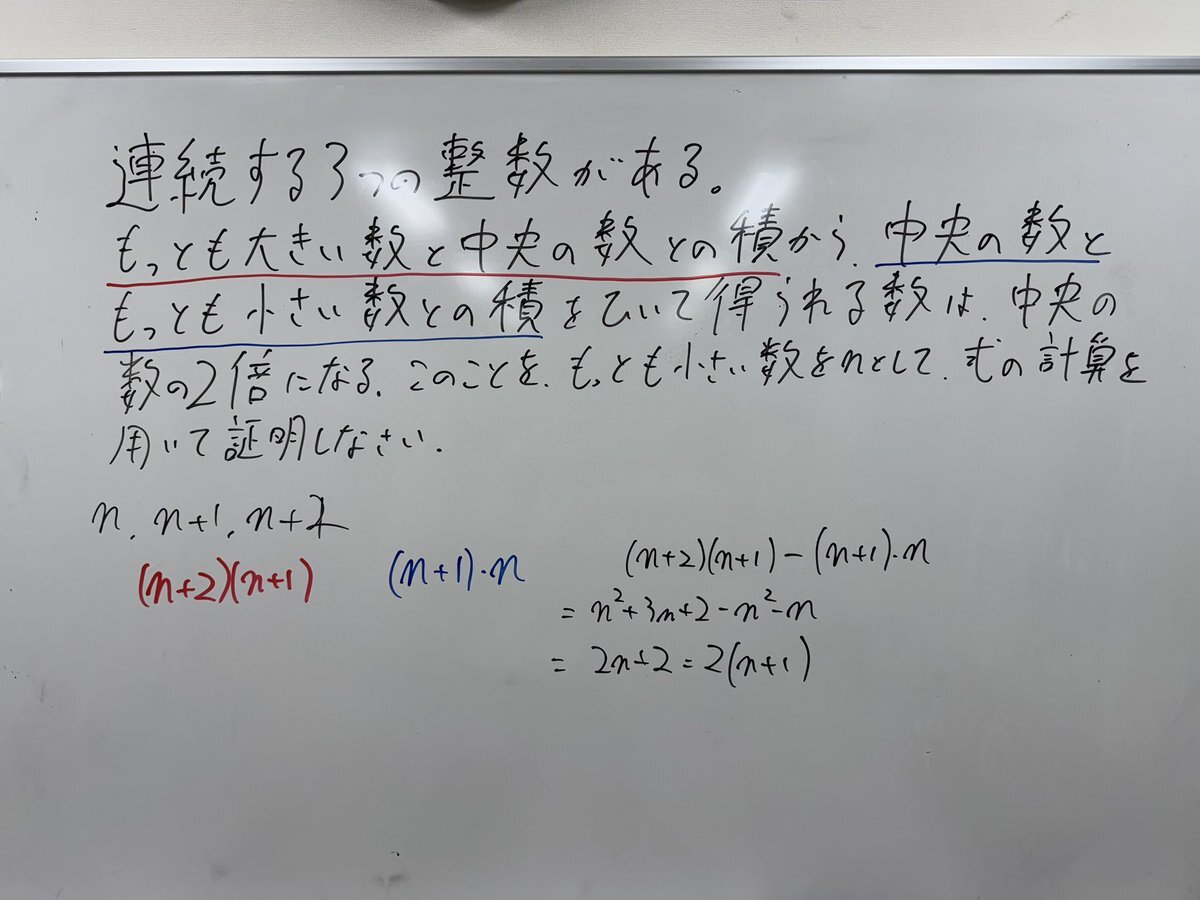 連続する3つの整数がある。
もっとも大きい数と中央の数との積から、中央の数と
もっとも小さい数との積をひいて得られる数は、中央の
数の2倍になる。このことを、もっとも小さい数をnとして、式の計算を
用いて証明しなさい。
n, n+1, n+2
(n+2)(n+1) (n+1)・n (n+2)(n+1)-(n+1)・n
= n²+3n+2-n²-n
= 2n+2=2(n+1)